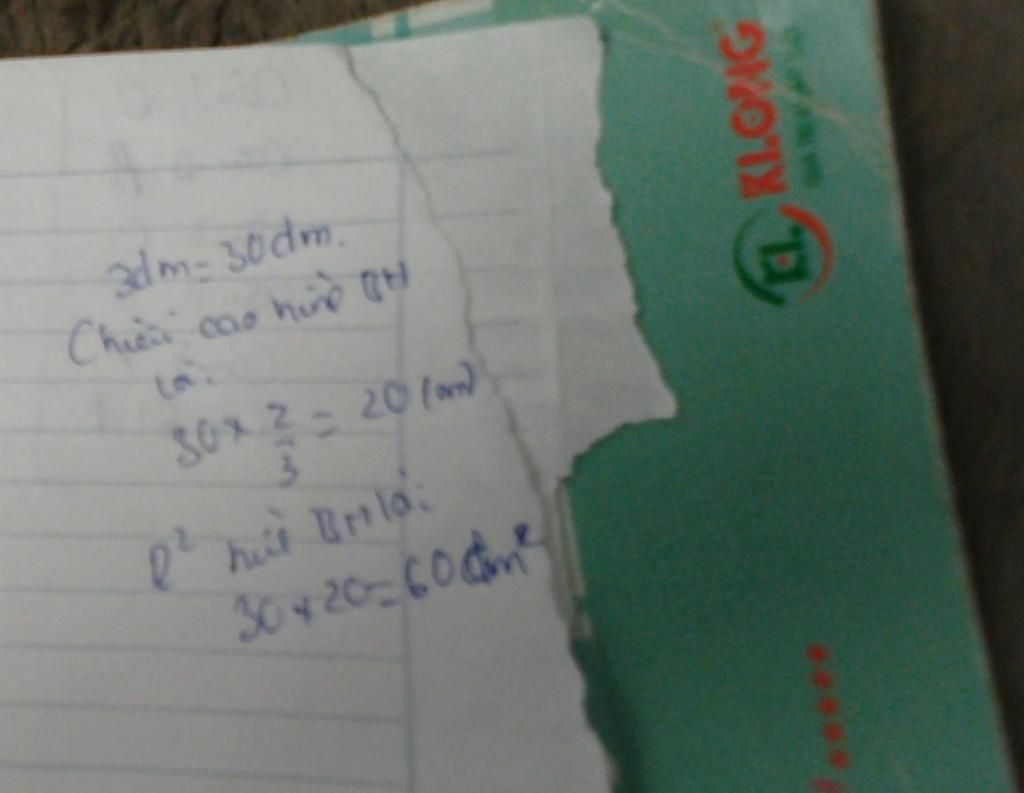 3dm = 30dm.
Chiều cao hình BH
là:
30 × 2/3 = 20 (cm)
hình BH là:
30 × 20 = 60
KLONG
KL